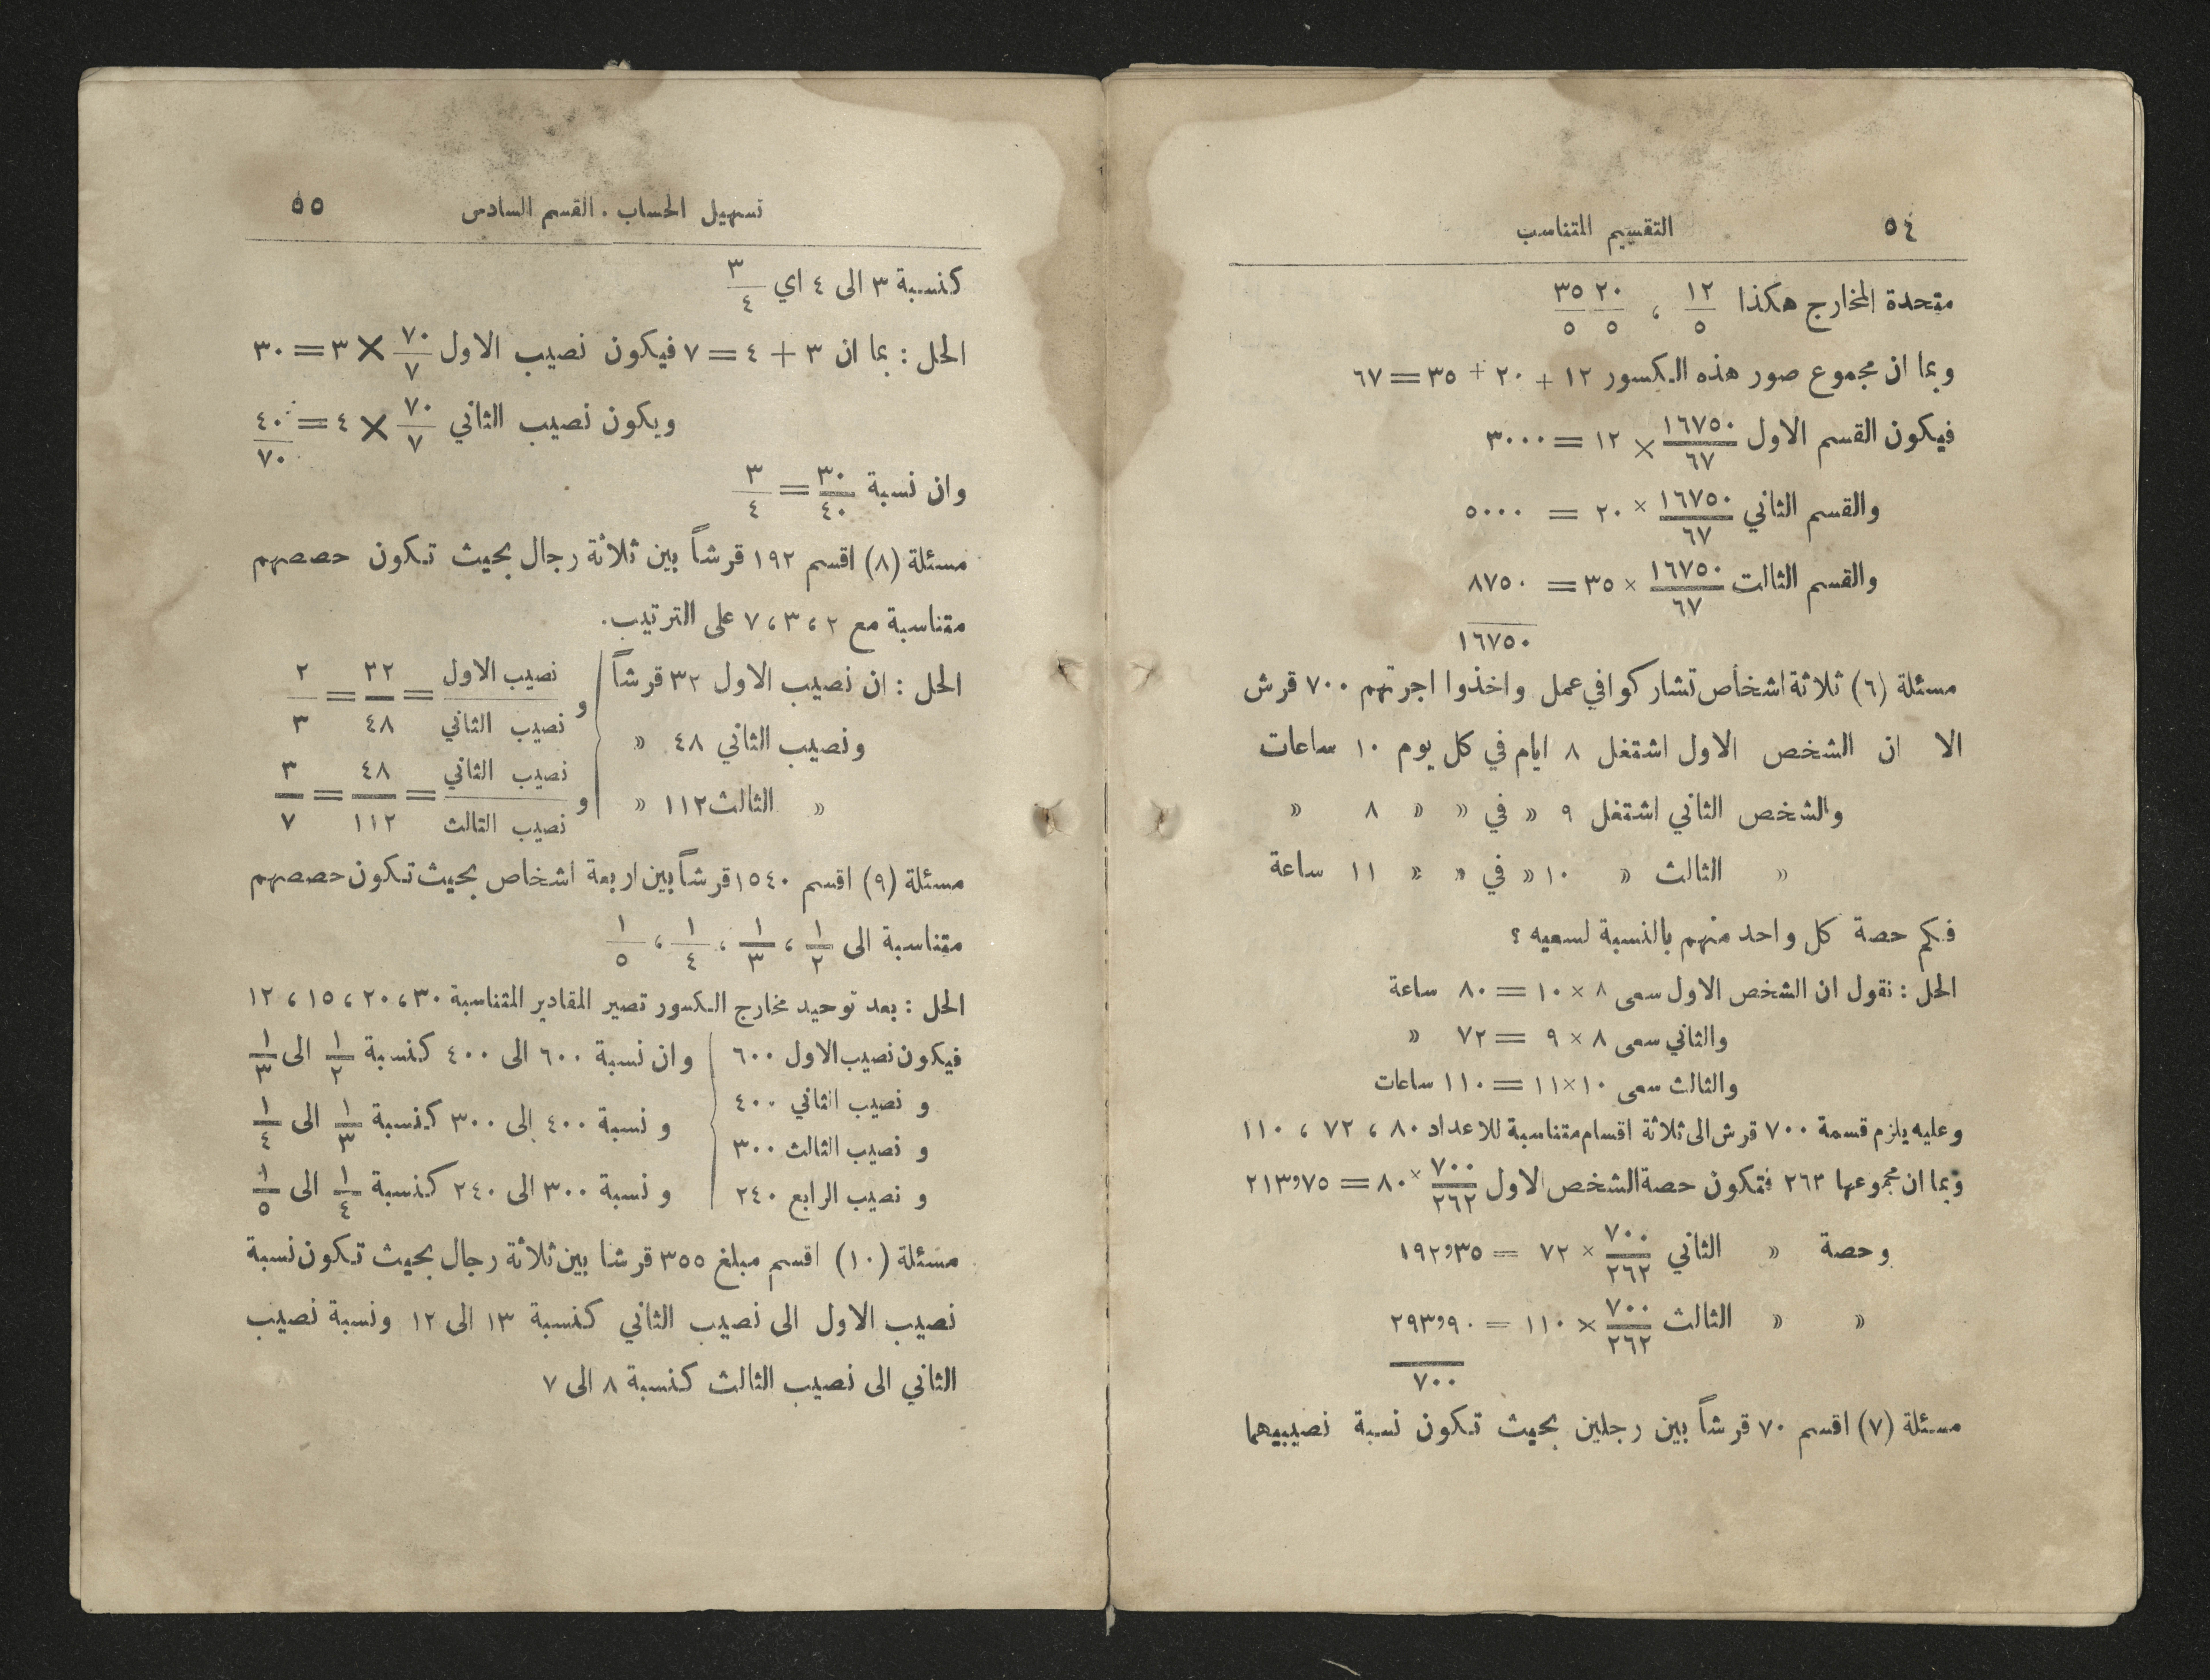 ٥٤ التقسيم المتناسب
متحدة المخارج هكذا ١٢/٥ ، ٢٠/٥ ٣٥/٥
وبما ان مجموع صور هذه الكسور ١٢ + ٢٠ + ٣٥ = ٦٧
فيكون القسم الاول ١٦٧٥٠/٦٧ × ١٢ = ٣٠٠٠
والقسم الثاني ١٦٧٥٠/٦٧ × ٢٠ = ٥٠٠٠
والقسم الثالث ١٦٧٥٠/٦٧ × ٣٥ = ٨٧٥٠
١٦٧٥٠
مسئلة (٦) ثلاثة اشخاص تشاركوا في عمل واخذوا اجرتهم ٧٠٠ قرش
الا ان الشخص الاول اشتغل ٨ ايام في كل يوم ١٠ ساعات
والشخص الثاني اشتغل ٩ » في » » ٨ »
» الثالث » ١٠ » في » » ١١ ساعة
فكم حصة كل واحد منهم بالنسبة لسعيه ؟
الحل : نقول ان الشخص الاول سعى ٨ × ١٠ = ٨٠ ساعة
والثاني سعى ٨ × ٩ = ٧٢ »
والثالث سعى ١٠ × ١١ = ١١٠ ساعات
وعليه يلزم قسمة ٧٠٠ قرش الى ثلاثة اقسام متناسبة للاعداد ٨٠ ، ٧٢ ، ١١٠
وبما ان مجموعها ٢٦٢ فتكون حصة الشخص الاول ٧٠٠/٢٦٢ × ٨٠ = ٢١٣,٧٥
وحصة » الثاني ٧٠٠/٢٦٢ × ٧٢ = ١٩٢,٣٥
» » الثالث ٧٠٠/٢٦٢ × ١١٠ = ٢٩٣,٩٠
٧٠٠
مسئلة (٧) اقسم ٧٠ قرشاً بين رجلين بحيث تكون نسبة نصيبيهما
تسهيل الحساب . القسم السادس ٥٥
كنسبة ٣ الى ٤ اي ٣/٤
الحل : بما ان ٣ + ٤ = ٧ فيكون نصيب الاول ٧٠/٧ × ٣ = ٣٠
ويكون نصيب الثاني ٧٠/٧ × ٤ = ٤٠
٧٠
وان نسبة ٣٠/٤٠ = ٣/٤
مسئلة (٨) اقسم ١٩٢ قرشاً بين ثلاثة رجال بحيث تكون حصصهم
متناسبة مع ٢ ، ٣ ، ٧ على الترتيب.
الحل : ان نصيب الاول ٣٢ قرشاً و نصيب الاول/نصيب الثاني = ٣٢/٤٨ = ٢/٣
ونصيب الثاني ٤٨ »
» الثالث ١١٢ » و نصيب الثاني/نصيب الثالث = ٤٨/١١٢ = ٣/٧
مسئلة (٩) اقسم ١٥٤٠ قرشاً بين اربعة اشخاص بحيث تكون حصصهم
متناسبة الى ١/٢ ، ١/٣ ، ١/٤ ، ١/٥
الحل : بعد توحيد مخارج الكسور تصير المقادير المتناسبة ٣٠ ، ٢٠ ، ١٥ ، ١٢
فيكون نصيب الاول ٦٠٠ وان نسبة ٦٠٠ الى ٤٠٠ كنسبة ١/٢ الى ١/٣
و نصيب الثاني ٤٠٠
و نسبة ٤٠٠ الى ٣٠٠ كنسبة ١/٣ الى ١/٤
و نصيب الثالث ٣٠٠
و نصيب الرابع ٢٤٠ و نسبة ٣٠٠ الى ٢٤٠ كنسبة ١/٤ الى ١/٥
مسئلة (١٠) اقسم مبلغ ٣٥٥ قرشا بين ثلاثة رجال بحيث تكون نسبة
نصيب الاول الى نصيب الثاني كنسبة ١٣ الى ١٢ ونسبة نصيب
الثاني الى نصيب الثالث كنسبة ٨ الى ٧